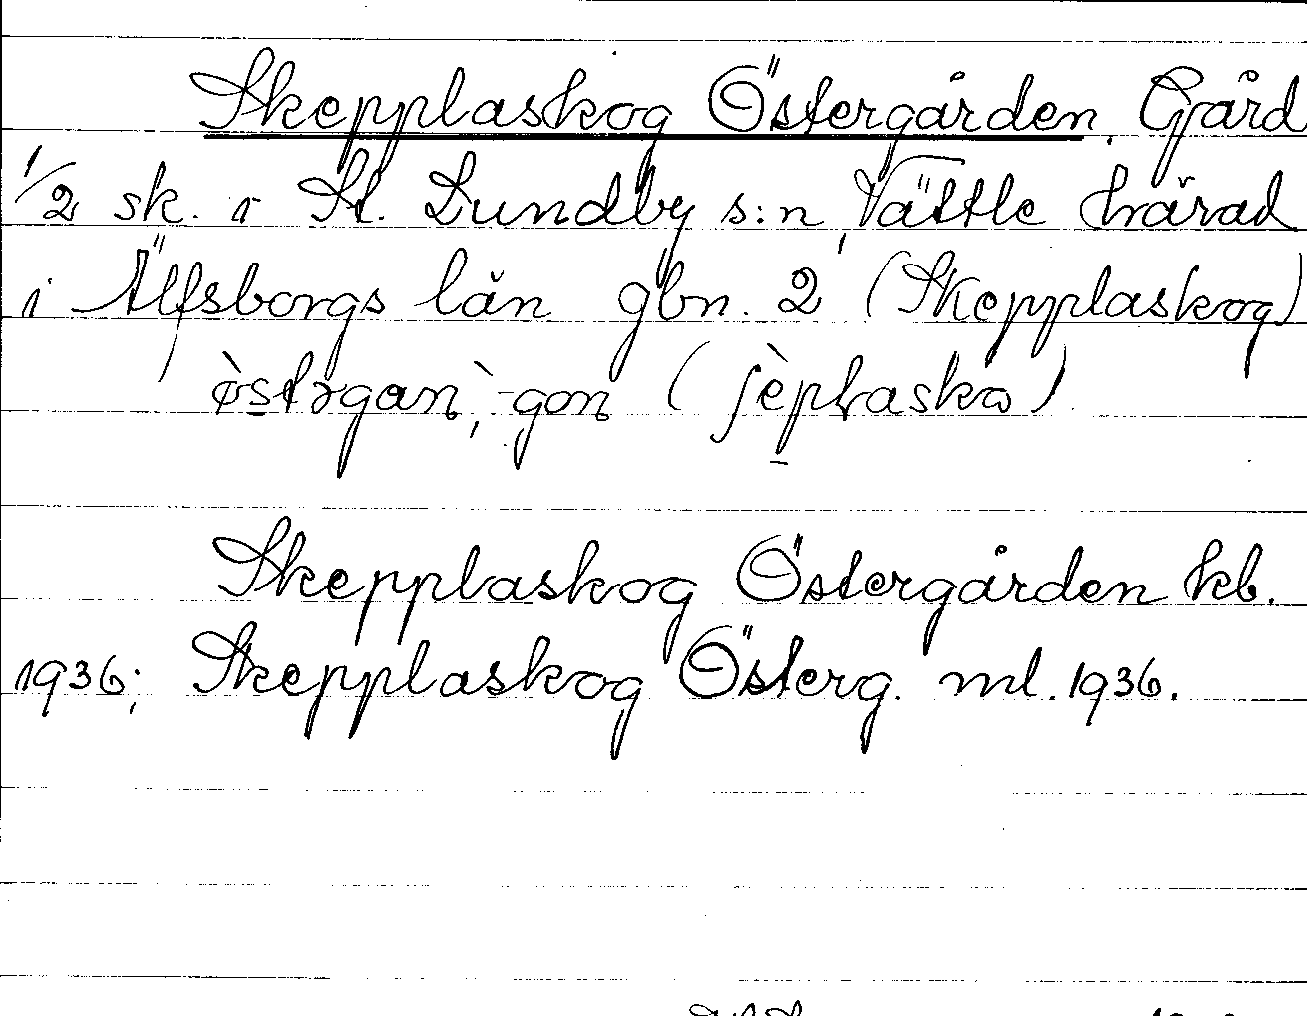 Skepplaskog Östergården. Gård
1/2 sk. i St. Lundby s:n, Vättle härad
i Älfsborgs län gbn. 2 (Skepplaskog)
östərgan, -gon (ʃèplasko)
Skepplaskog Östergården kb.
1936; Skepplaskog Österg. ml. 1936.